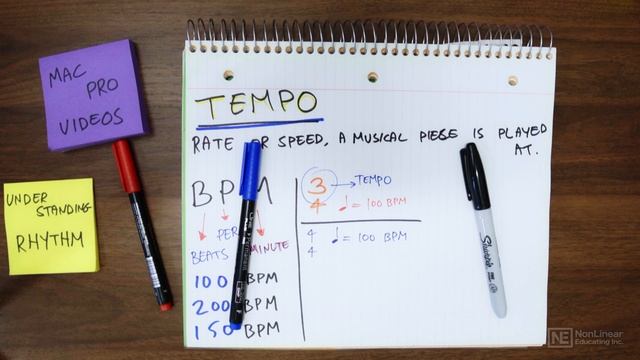 MAC
PRO
VIDEOS
UNDER
STANDING
RHYTHM
TEMPO
RATE OR SPEED, A MUSICAL PIECE IS PLAYED
AT.
BPM
PER
BEATS MINUTE
100 BPM
200 BPM
150 BPM
3 → TEMPO
4 ♩= 100 BPM
4 ♩= 100 BPM
4
Sharpie
NE NonLinear
Educating Inc.